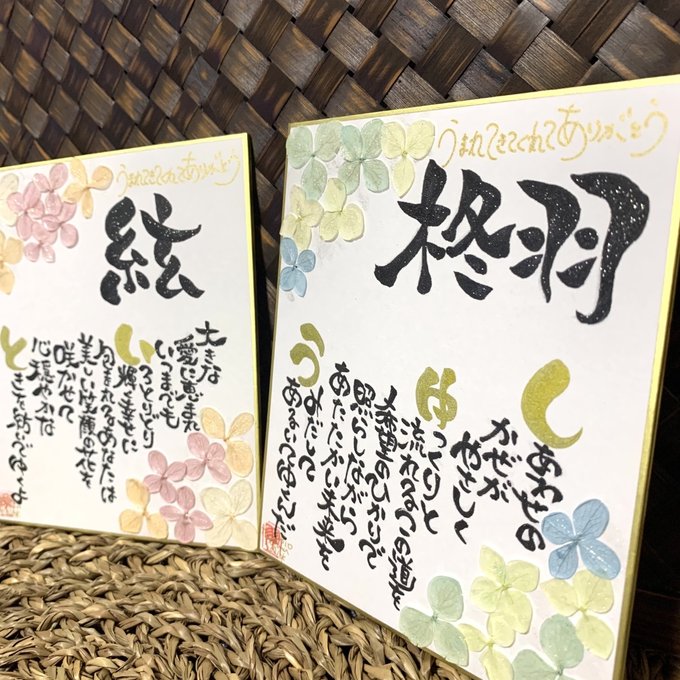 うまれてきてくれてありがとう
絃
大きな
愛に恵まれ
いつまでも
いろとりどり
輝く幸せに
包まれるあなたは
美しい笑顔の花を
咲かせて
心穏やかな
ときを紡いでゆく
うまれてきてくれてありがとう
柊羽
しあわせの
かぜが
やさしく
ゆっくりと
流れるこの道を
希望のひかりで
照らしながら
あたたかい未来を
うみだして